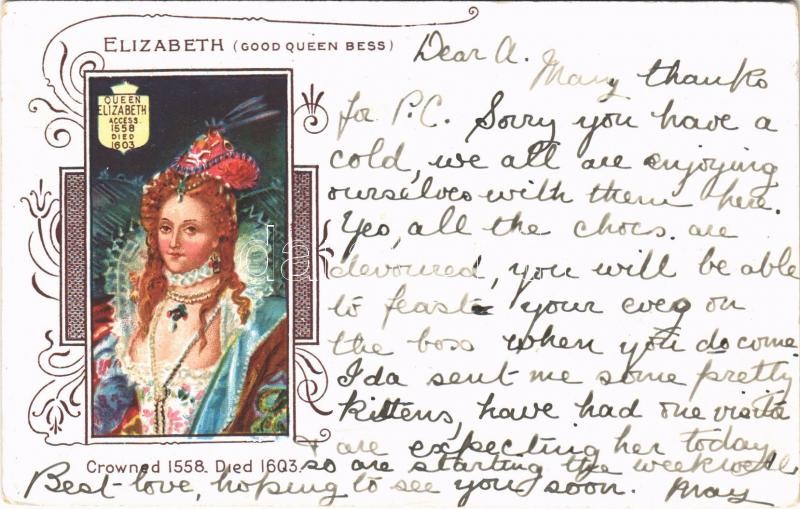 ELIZABETH (GOOD QUEEN BESS)
QUEEN
ELIZABETH
ACCESS.
1558
DIED
1603
Crowned 1558. Died 1603.
Dear A.
Many thanks
for P.C. Sorry you have a
cold, we all are enjoying
ourselves with them here.
Yes, all the chocs. are
devoured, you will be able
to feast your eyes on
the box when you do come.
Ida sent me some pretty
kittens, have had one visitor
& are expecting her today
so are starting the week well.
Best love, hoping to see you soon. May